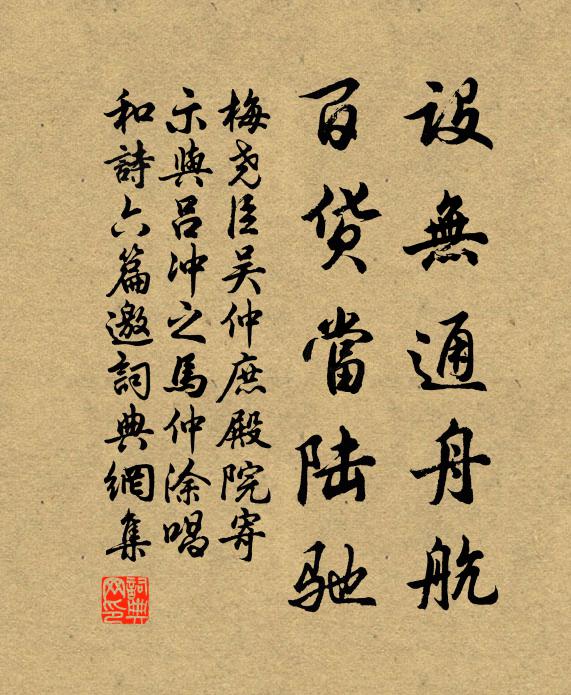 設無通舟航
百貨當陸馳
梅堯臣吴仲庶殿院寄
示與呂冲之馬仲涂唱
和詩六篇邀詞典網集
詞典
网印